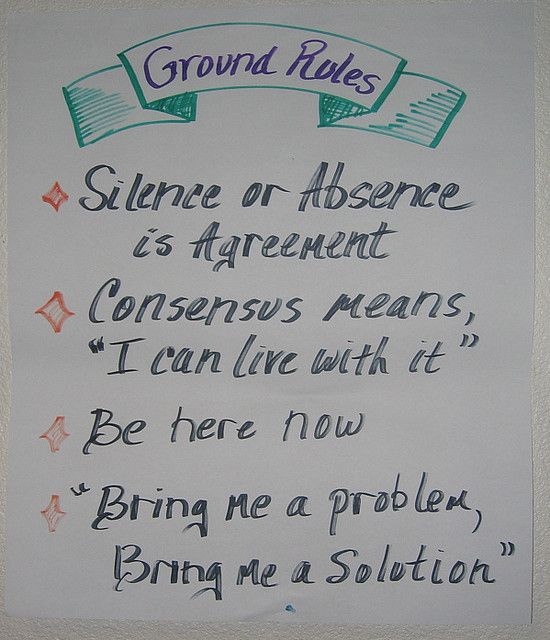 Ground Rules
Silence or Absence
is Agreement
Consensus means,
"I can live with it"
Be here now
"Bring me a problem,
Bring me a Solution"